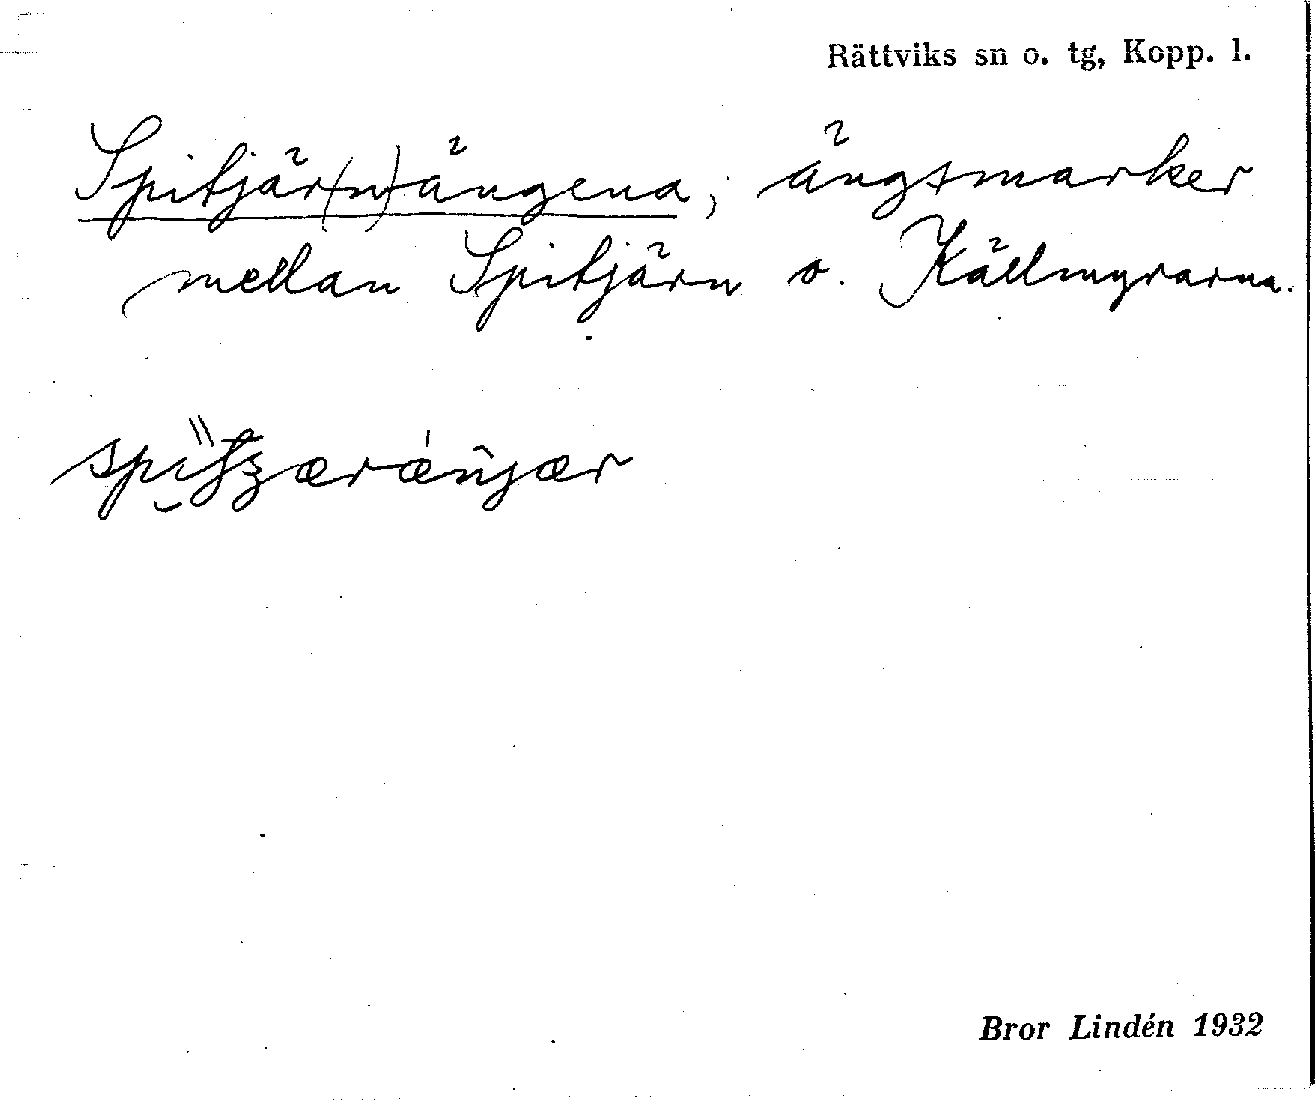 Rättviks sn o. tg, Kopp. l.
Spitjär(n)ängena; ängsmarker
mellan Spitjärn o. Källmyrarna.
Bror Lindén 1932